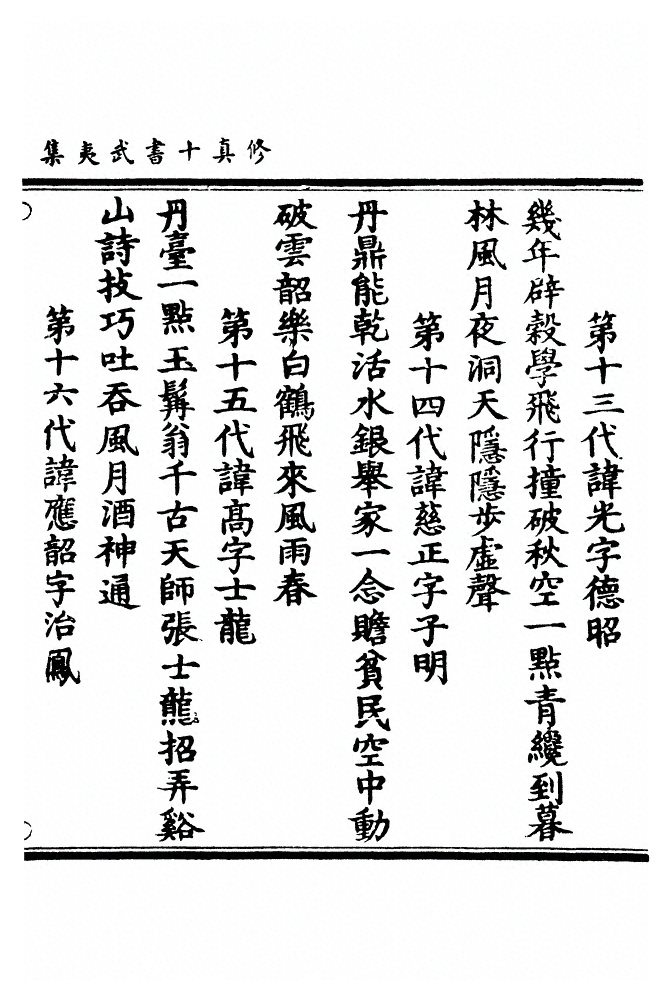 修真十書武夷集
第十三代諱光字德昭
幾年辟穀學飛行撞破秋空一點青纔到暮
林風月夜洞天隱隱步虛聲
第十四代諱慈正字子明
丹鼎能乾活水銀舉家一念贍貧民空中動
破雲韶樂白鶴飛來風雨春
第十五代諱高字士龍
丹臺一點玉髯翁千古天師張士龍招弄谿
山詩技巧吐吞風月酒神通
第十六代諱應韶字治鳳